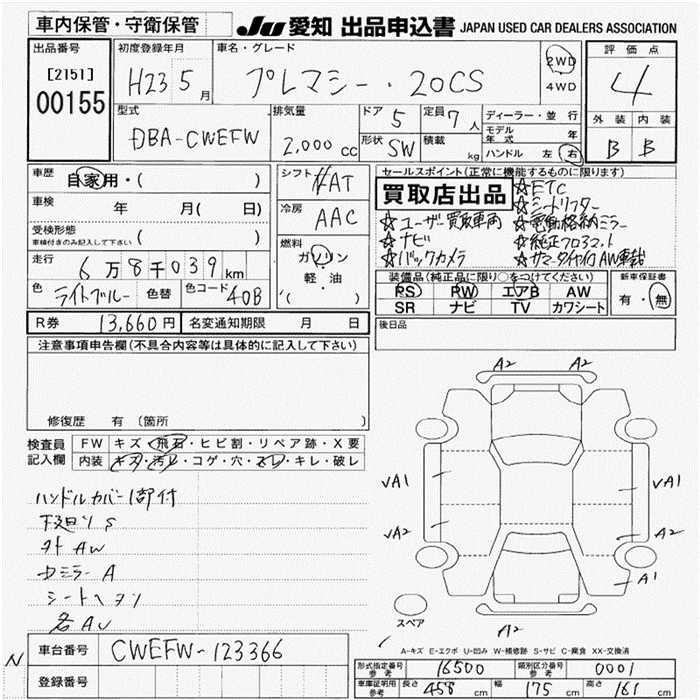 車内保管・守衛保管
JU 愛知 出品申込書 JAPAN USED CAR DEALERS ASSOCIATION
出品番号
[2151]
00155
初度登録年月
H23 5月
車名・グレード
プレマシー・20CS
2WD
4WD
評価点
4
型式
DBA-CWEFW
排気量
2,000cc
ドア 5
定員 7人
形状 SW
積載 kg
ディーラー・並行
モデル年式 年
ハンドル 左 右
外装 内装
B B
車歴 自家用・( )
車検 年 月( 日)
受検形態 ( )
車検付きのみ記入して下さい
走行 6万8千039km
色 ライトブルー 色替 色コード 40B
シフト AT
冷房 AAC
燃料
ガソリン
軽・油
( )
セールスポイント(正常に機能するものに限ります)
買取店出品
☆ETC
☆シートリフター
☆ユーザー買取車両
☆電動格納ミラー
☆ナビ
☆純正フロアマット
☆バックカメラ
☆サマータイヤ付AW車載
装備品(純正品に限り○をつけてください)
PS RW エアB AW
SR ナビ TV カワシート
新車保証書
有・無
R券 13,660円 名変通知期限 月 日
後日品
注意事項申告欄(不具合内容等は具体的に記入して下さい)
修復歴 有 〔箇所
検査員記入欄
FW キズ・飛石・ヒビ割・リペア跡・X要
内装 キズ・汚レ・コゲ・穴・スレ・キレ・破レ
ハンドルカバー1部付
下廻りS
AW
ミラーA
シート
AW
A2 A2
√A1 √A1
√A2 √A2
A1
スペア
A2
A-キズ E-エクボ U-凹み W-補修跡 S-サビ C-腐食 XX-交換済
N
車台番号 CWEFW-123366
登録番号
形式指定番号 参考 16500 類別区分番号 参考 0001
車庫証明用 参考 長さ 458cm 幅 175cm 高さ 161cm